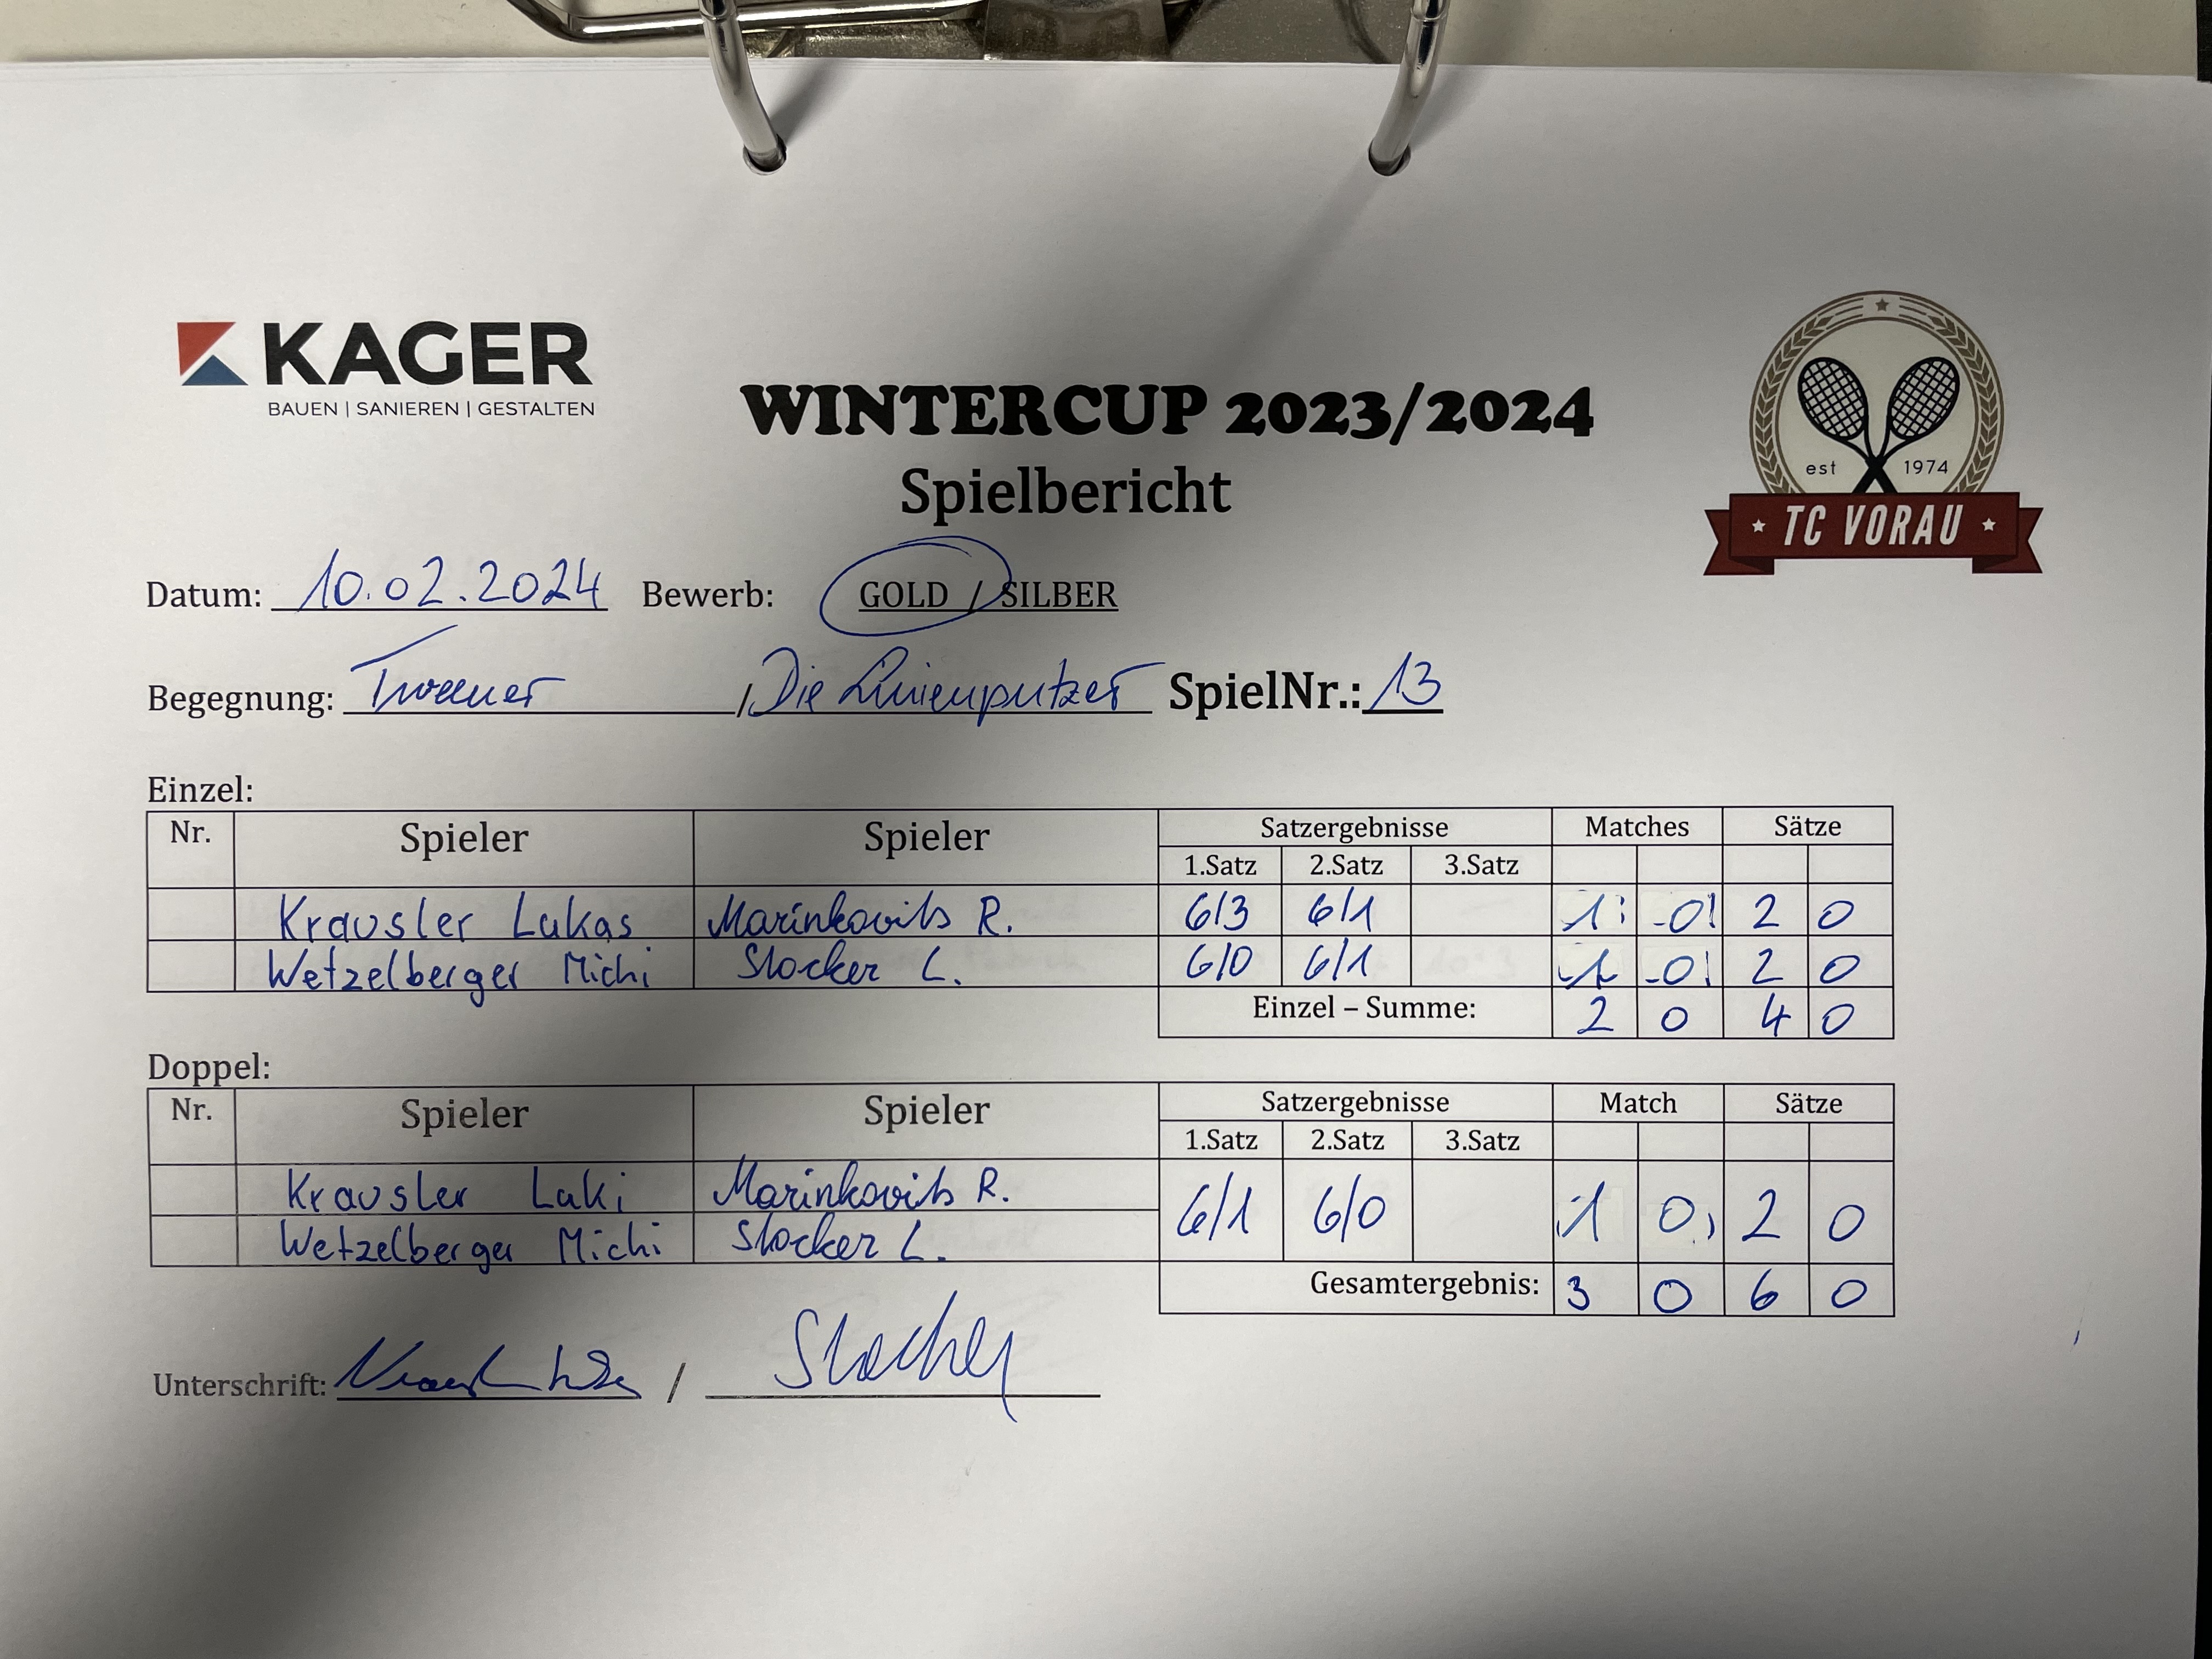 KAGER
BAUEN | SANIEREN | GESTALTEN
WINTERCUP 2023/2024
Spielbericht
est 1974
TC VORAU
Datum: 10.02.2024 Bewerb: GOLD / SILBER
Begegnung: / Die Linienputzer SpielNr.: 13
Einzel:
Nr. Spieler Spieler Satzergebnisse Matches Sätze
1.Satz 2.Satz 3.Satz
Krausler Lukas Marinkovits R. 6/3 6/1 1 0 2 0
Wetzelberger Michi Stocker L. 6/0 6/1 1 0 2 0
Einzel – Summe: 2 0 4 0
Doppel:
Nr. Spieler Spieler Satzergebnisse Match Sätze
1.Satz 2.Satz 3.Satz
Krausler Luki Marinkovits R. 6/1 6/0 1 0 2 0
Wetzelberger Michi Stocker L.
Gesamtergebnis: 3 0 6 0
Unterschrift: / Stocker